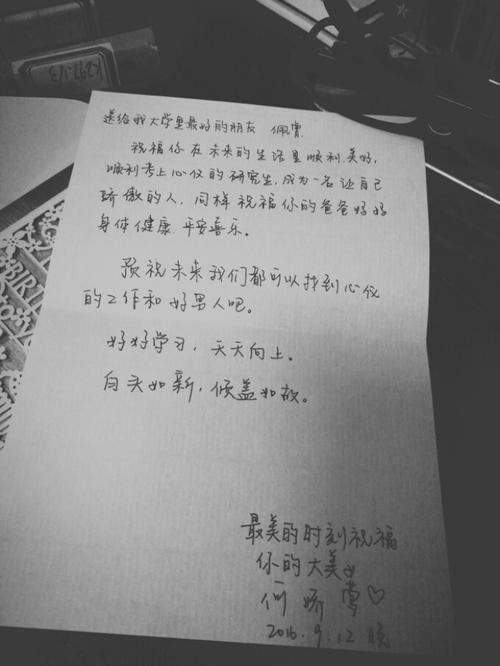 K297.1/3
送给我大学里最好的朋友 佩
祝福你在未来的生活里顺利、美好,
顺利考上心仪的研究生,成为一名让自己
骄傲的人,同样祝福你的爸爸妈妈
身体健康、平安喜乐。
预祝未来我们都可以找到心仪
的工作和好男人吧。
好好学习,天天向上。
白头如新,倾盖如故。
最美的时刻祝福
你的大美女
何娇莺♡
2016.9.12 晚